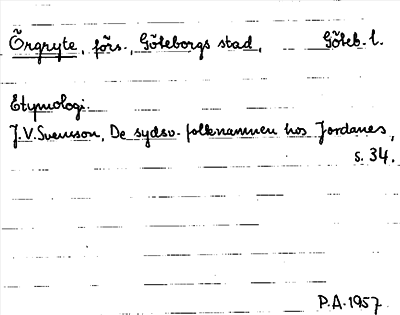 Örgryte, förs., Göteborgs stad, Göteb. l.
Etymologi.
J.V. Svensson, De sydsv. folknamnen hos Jordanes,
s. 34.
P.A. 1957